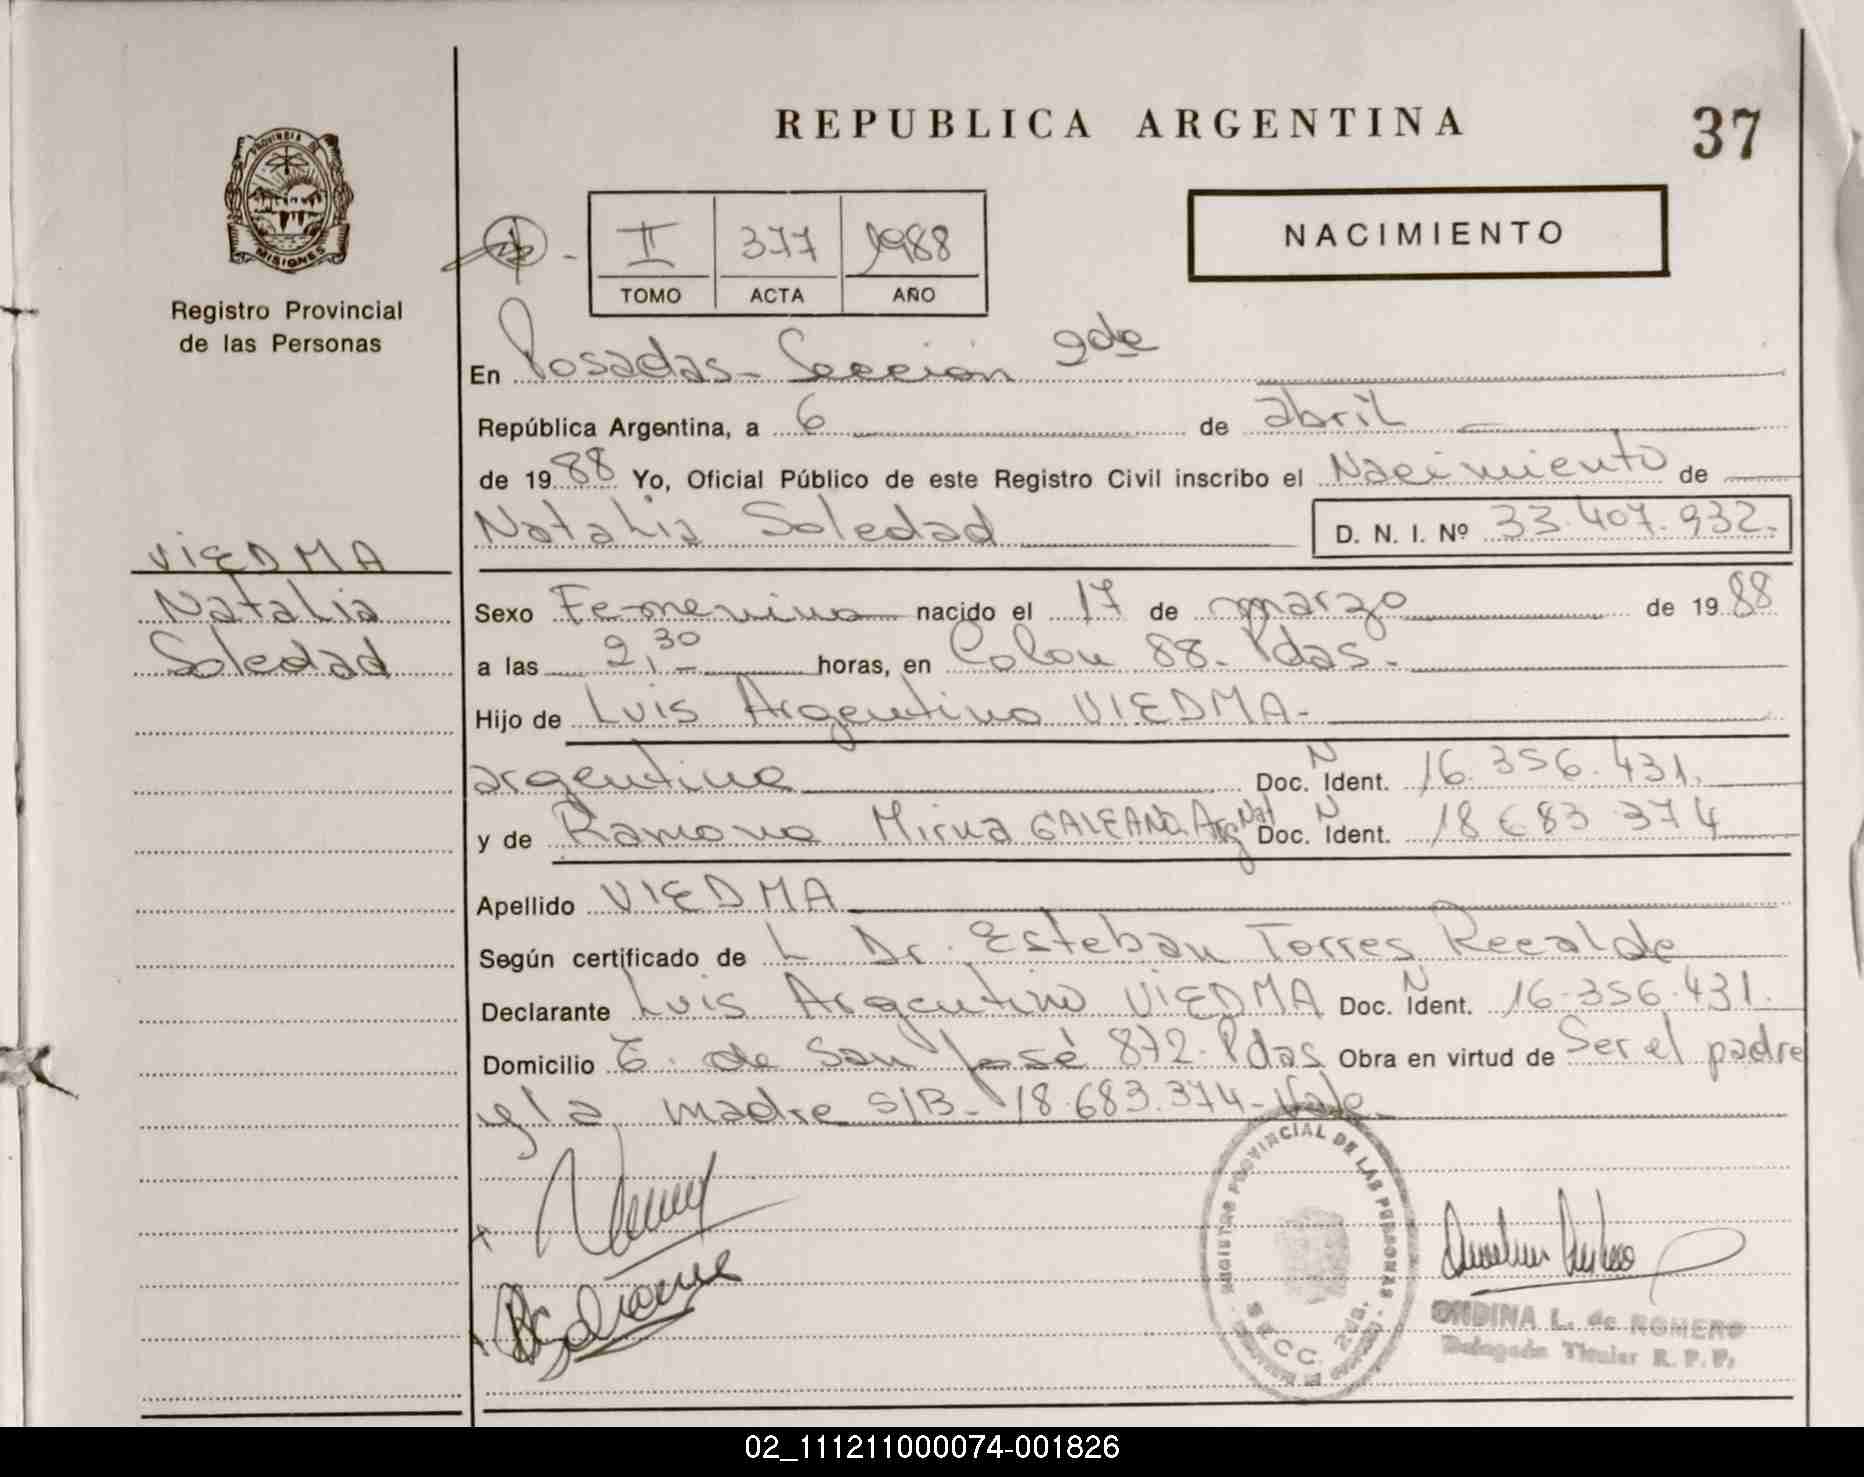 REPUBLICA ARGENTINA
37
PROVINCIA DE
MISIONES
Registro Provincial
de las Personas
II 377 1988
TOMO ACTA AÑO
NACIMIENTO
En Posadas - Sección 2da
República Argentina, a 6 de abril
de 1988 Yo, Oficial Público de este Registro Civil inscribo el Nacimiento de
Natalia Soledad D. N. I. Nº 33.407.932.
VIEDMA
Natalia
Soledad
Sexo Femenino nacido el 17 de marzo de 1988
a las 2,30 horas, en Colon 88. Pdas.
Hijo de Luis Argentino VIEDMA-
argentino Doc. N Ident. 16.356.431.
y de Ramona Mirna GALEANO. Arg Nat Doc. N Ident. 18 683 374
Apellido VIEDMA
Según certificado de L Dr. Esteban Torres Recalde
Declarante Luis Argentino VIEDMA Doc. N Ident. 16.356.431.
Domicilio E. de San José 872. Pdas Obra en virtud de Ser el padre
y la madre S/B- 18.683.374- Vale.
REGISTRO PROVINCIAL DE LAS PERSONAS
SECC. 2da.
ONDINA L. de ROMERO
Delegada Titular R. P. P.
02_111211000074-001826